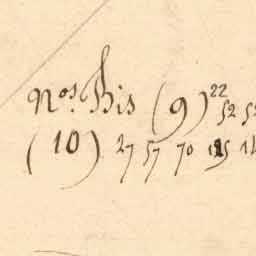 nos. Bis (9) 22 52
(10) 27 57 70